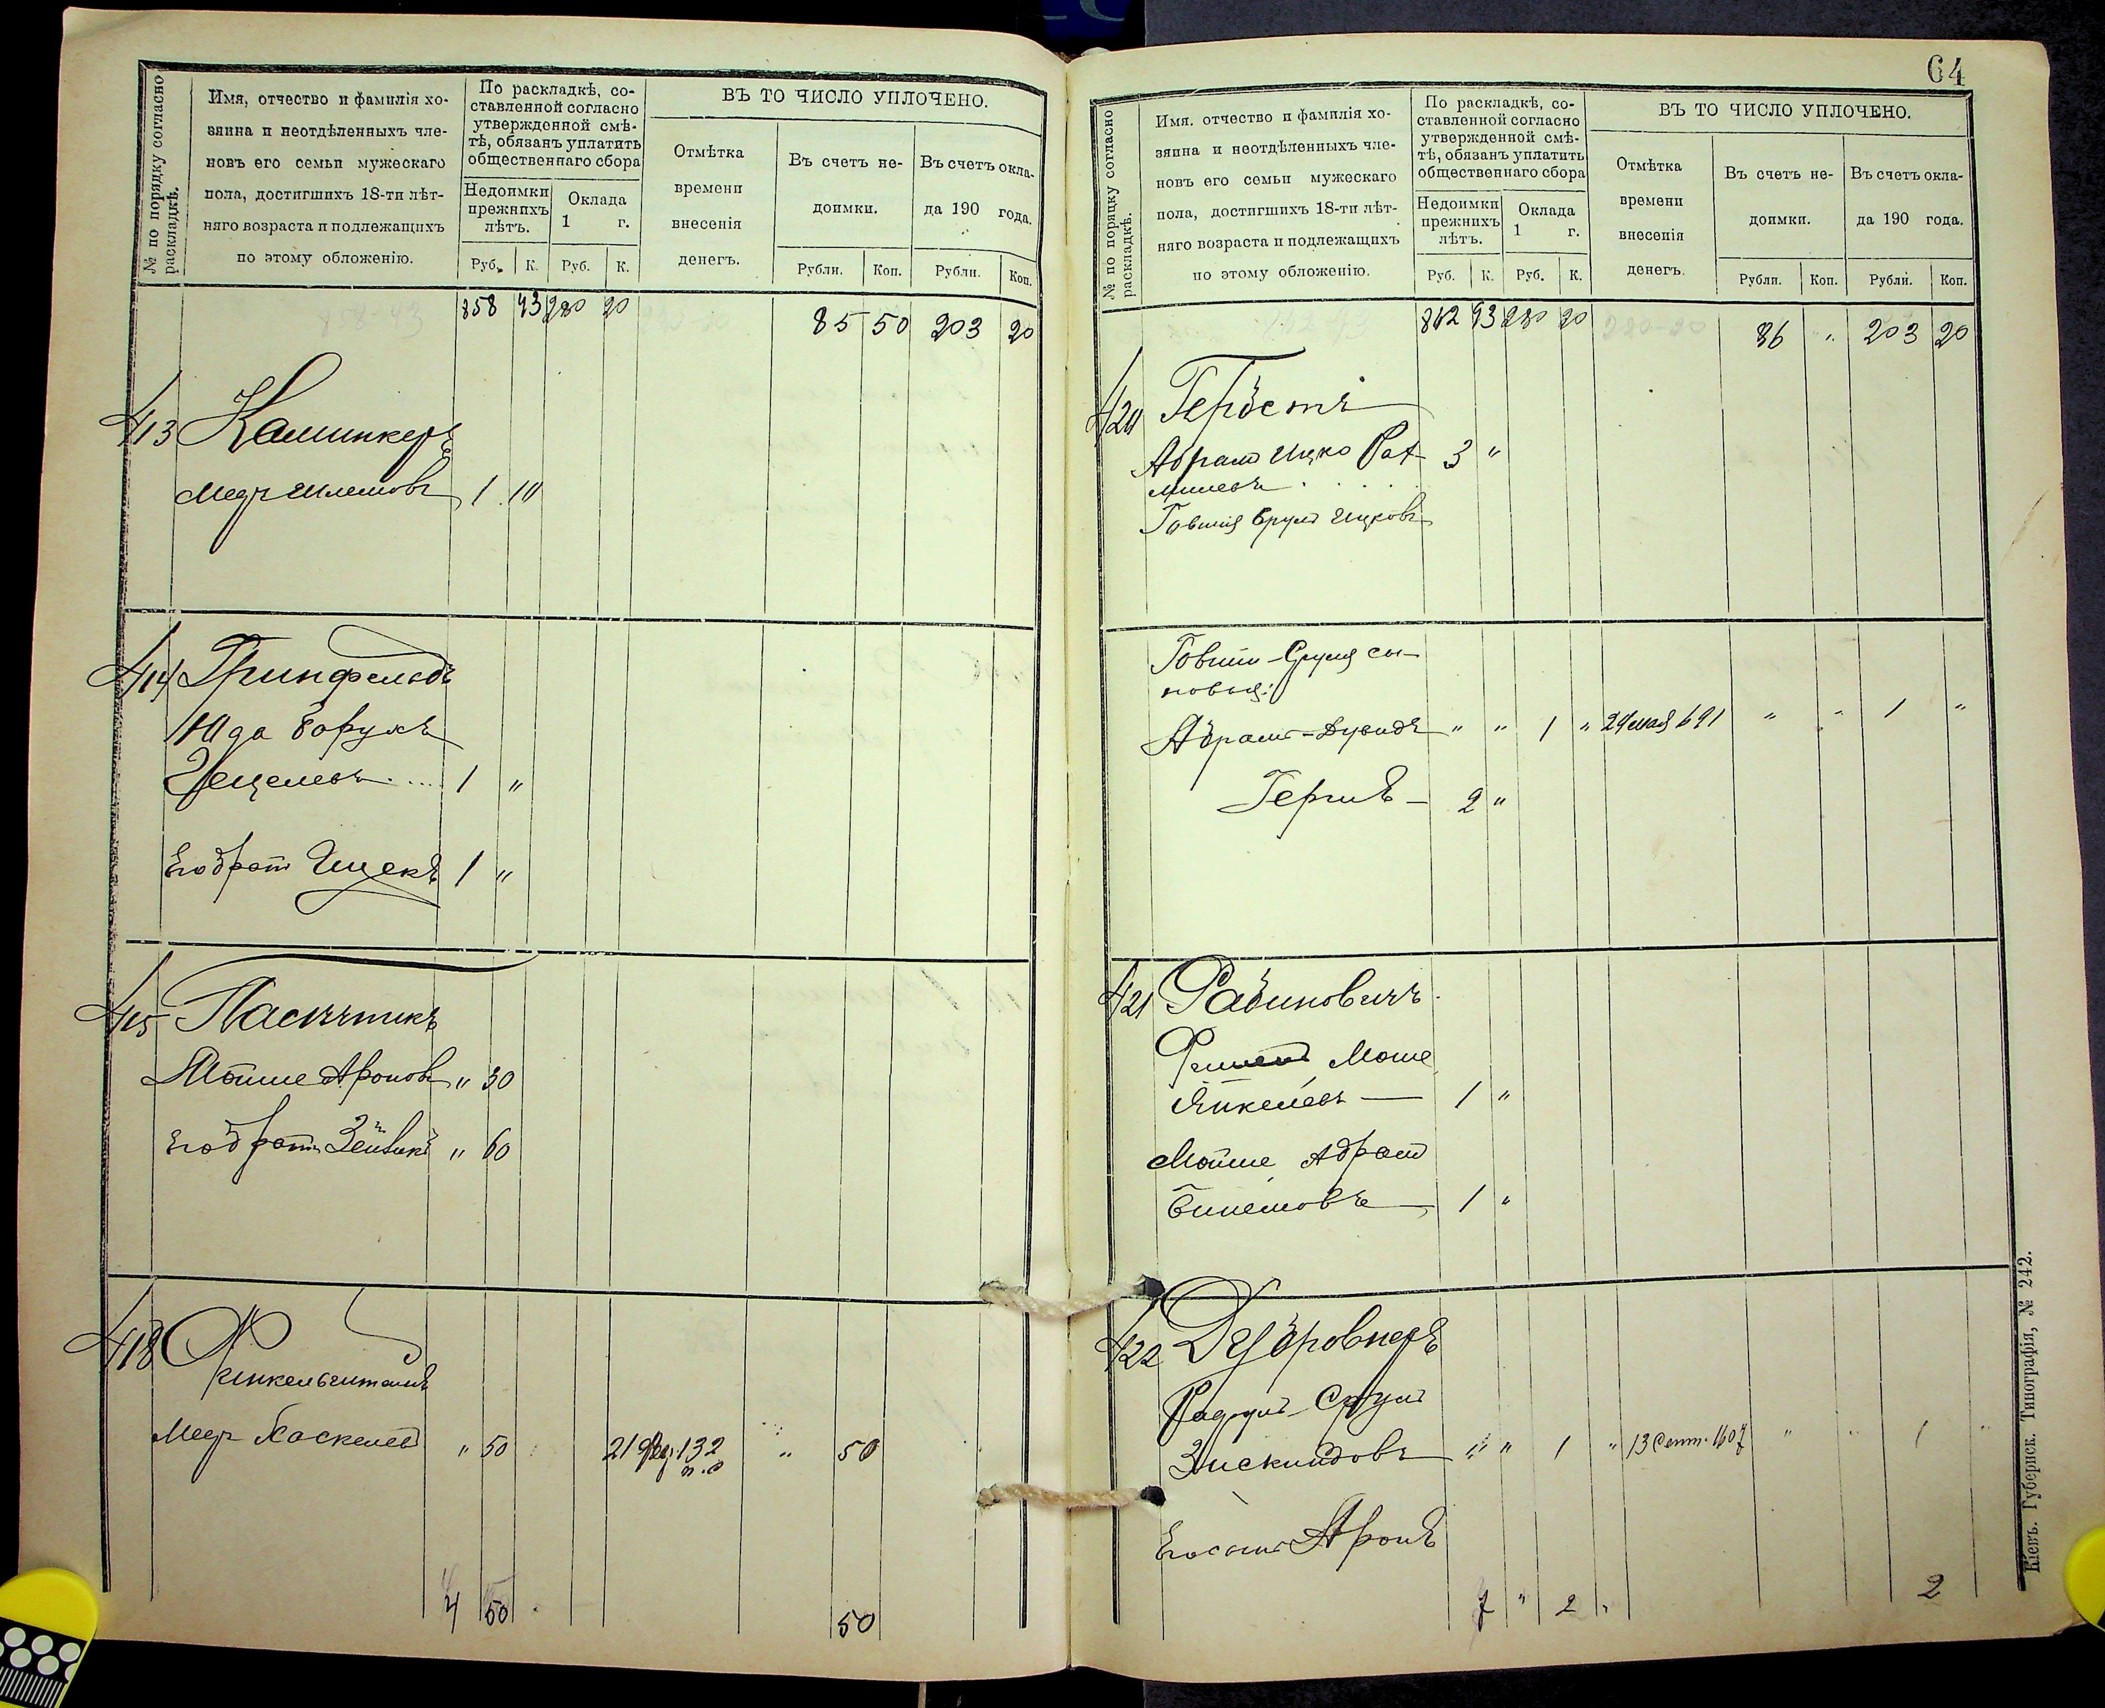 № по порядку согласно
раскладкѣ.
Имя, отчество и фамилія хо-
зяина и неотдѣленныхъ чле-
новъ его семьи мужескаго
пола, достигшихъ 18-ти лѣт-
няго возраста и подлежащихъ
по этому обложенію.
По раскладкѣ, со-
ставленной согласно
утвержденной смѣ-
тѣ, обязанъ уплатить
общественнаго сбора
Недоимки
прежнихъ
лѣтъ.
Оклада
1 г.
Руб. К. Руб. К.
ВЪ ТО ЧИСЛО УПЛОЧЕНО.
Отмѣтка
времени
внесенія
денегъ.
Въ счетъ не-
доимки.
Въ счетъ окла-
да 190 года.
Рубли. Коп. Рубли. Коп.
858 43 280 20 85 50 203 20
413 Каминкеръ
Мееръ Шлемовъ 1 10
414 Гринфельдъ
Юда Борухъ
Гецелевъ 1 "
Его братъ Ицекъ 1 "
415 Пасичникъ
Мойше Ароновъ " 30
Его братъ Зейвикъ " 60
418 Финкельштейнъ
Меер Хаскелев " 50 21 132 " 50
4 50 50
64
№ по порядку согласно
раскладкѣ.
Имя, отчество и фамилія хо-
зяина и неотдѣленныхъ чле-
новъ его семьи мужескаго
пола, достигшихъ 18-ти лѣт-
няго возраста и подлежащихъ
по этому обложенію.
По раскладкѣ, со-
ставленной согласно
утвержденной смѣ-
тѣ, обязанъ уплатить
общественнаго сбора
Недоимки
прежнихъ
лѣтъ.
Оклада
1 г.
Руб. К. Руб. К.
ВЪ ТО ЧИСЛО УПЛОЧЕНО.
Отмѣтка
времени
внесенія
денегъ.
Въ счетъ не-
доимки.
Въ счетъ окла-
да 190 года.
Рубли. Коп. Рубли. Коп.
862 93 280 20 86 " 203 20
420 Гербстъ
Абрам Ицко Рах- 3 "
милевъ
Говшія Срулъ Ицковъ
Говшіи-Сруля сы-
новья:
Абрамъ-Дувидъ " " 1 " 24 мая 691 " " 1 "
Гершъ 2 "
421 Рабиновичъ
Мойше
Янкелевъ 1 "
Мойше Абрам
Бинемовъ 1 "
422 Дубровнеръ
Срулъ
Зискиндовъ " " 1 " 13 Сент. 1607 " " 1 "
Его сынъ Аронъ
7 " 2 " 2
Кіевъ. Губернск. Типографія, № 242.